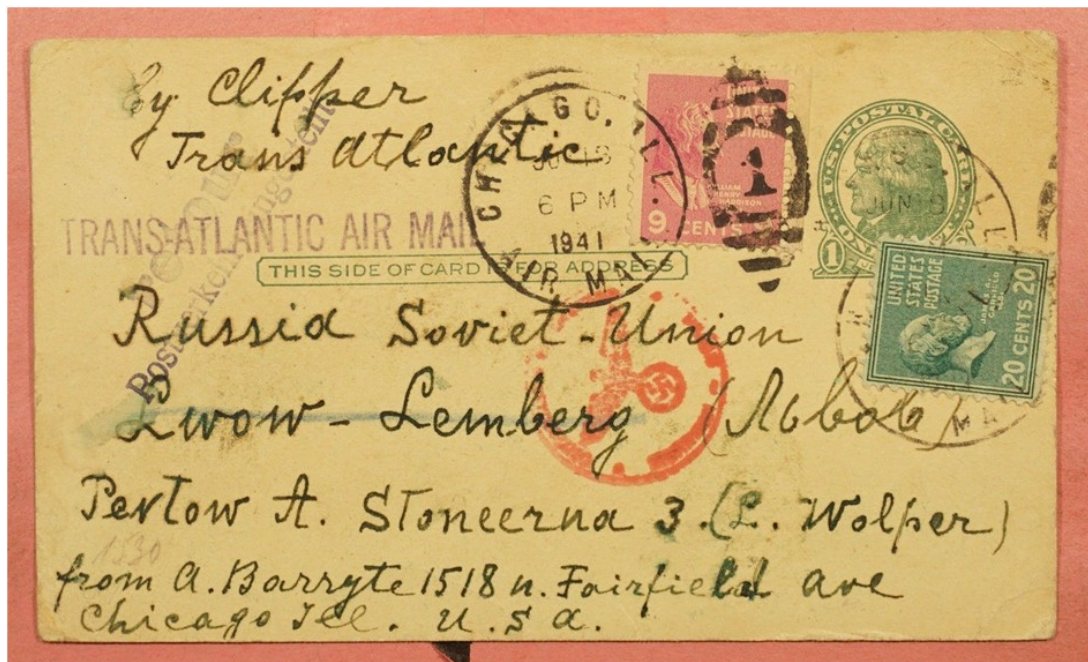 by Clipper
Trans Atlantic
TRANS-ATLANTIC AIR MAIL
THIS SIDE OF CARD IS FOR ADDRESS
CHICAGO, ILL.
6 PM
1941
AIR MAIL
UNITED
STATES
POSTAGE
WILLIAM
HENRY
HARRISON
9 CENTS
1
U.S. POSTAL CARD
JUN
1
UNITED
STATES
POSTAGE
JAMES A.
GARFIELD
20 CENTS 20
Russia Soviet-Union
Lwow - Lemberg (Львов)
Perlow A. Stoneerna 3. (L. Wolper)
1530
from A. Barryte 1518 n. Fairfield ave
Chicago Ill. U.S.A.